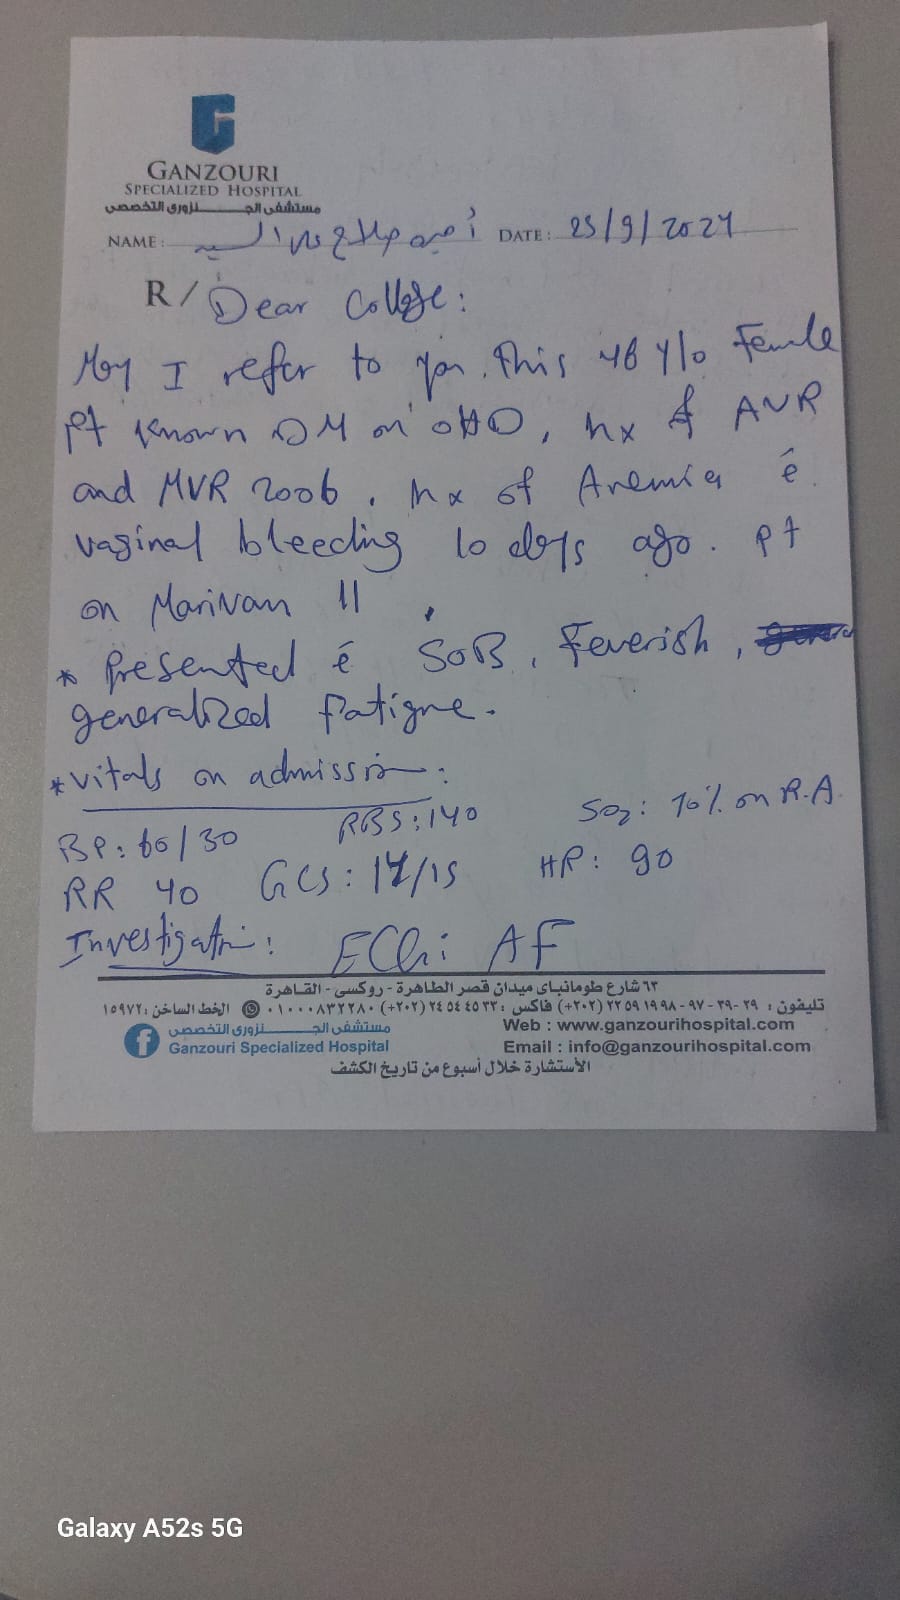 GANZOURI
SPECIALIZED HOSPITAL
مستشفى الجنزورى التخصصى
NAME: صلاح السيد DATE: 25/9/2024
R/ Dear College:
May I refer to you. This 46 y/o Female
pt known DM on OHD, hx of AVR
and MVR 2006. hx of Anemia é
vaginal bleeding 10 days ago. pt
on Marivan
* Presented é SOB, Feverish,
generalized fatigue.
* vitals on admission:
BP: 60/30 RBS: 140 SO2: 70% on R.A
RR 40 GCS: 14/15 HR: 90
Investigation: ECG: AF
٦٣ شارع طومانباى ميدان قصر الطاهرة - روكسى - القاهرة
تليفون : ٢٩ -٣٩ - ٩٧ - ٩٨ ١٩ ٥٩ ٢٢ (٢٠٢+) فاكس : ٣٣ ٤٥ ٥٤ ٢٤ (٢٠٢+) ٠١٠٠٠٨٣٢٢٨٠ الخط الساخن : ١٥٩٧٢
مستشفى الجنزورى التخصصى Web : www.ganzourihospital.com
Ganzouri Specialized Hospital Email : info@ganzourihospital.com
الأستشارة خلال أسبوع من تاريخ الكشف
Galaxy A52s 5G